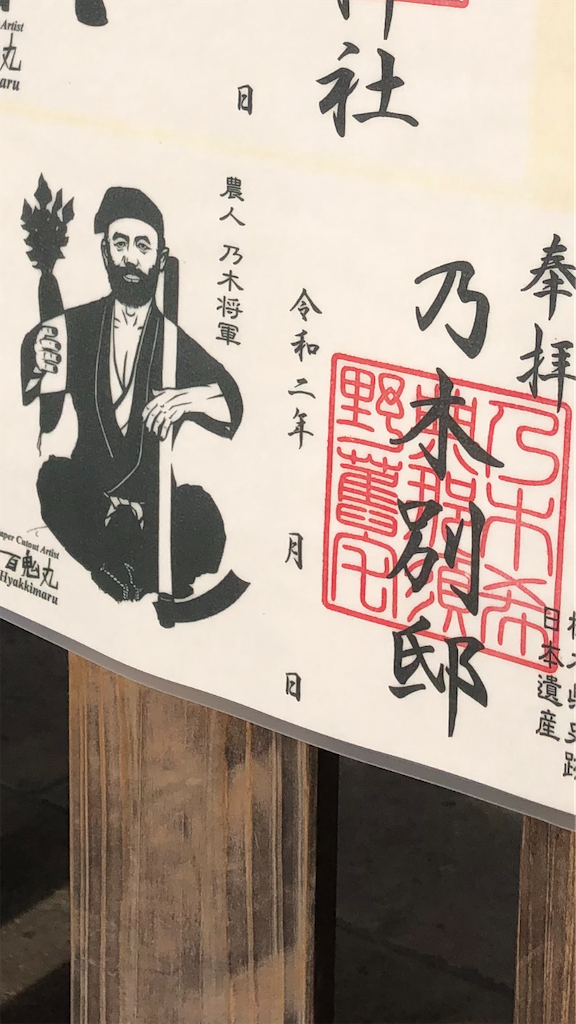 社
日
奉拝
乃木別邸
乃木希
典那須
野旧宅
日本遺産
令和二年
月
日
農人 乃木将軍
Paper Cutout Artist
百鬼丸
Hyakkimaru